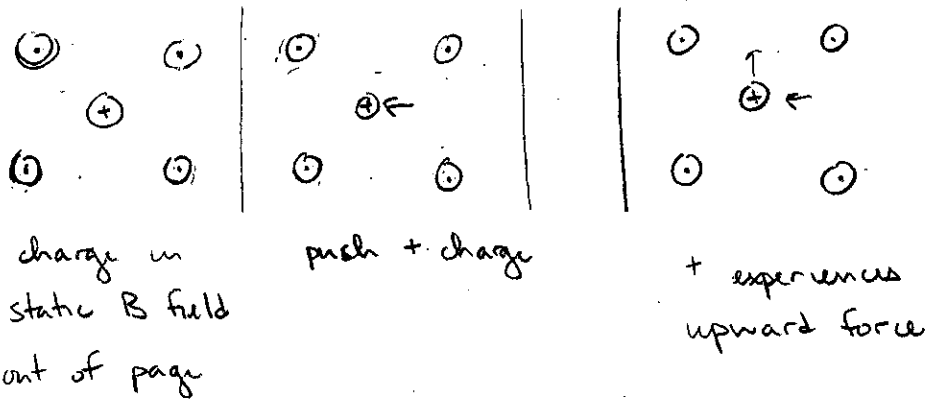 charge in
static B field
out of page
push + charge
+ experiences
upward force